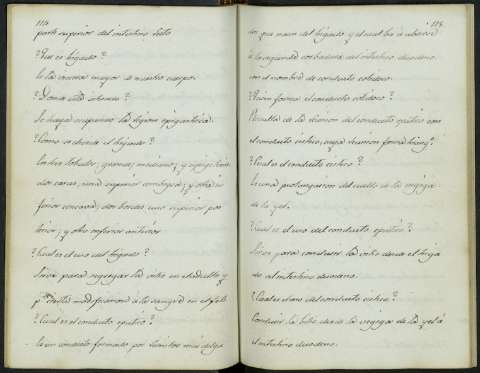 114
parte superior del intestino recto
¿Que es hígado?
Es la víscera mayor de nuestro cuerpo.
¿Donde está situado?
Se haya ocupando la region epigastrica.
¿Como se divide el higado?
En tres lobulos; grande; mediano; y
dos caras; una superior combeja; y otra in
ferior concava; dos bordes uno superior pos
terior; y otro inferior anterior
¿Cual es el uso del higado?
Sirve para segregar la bilis
y modificando a la sangre en el
¿Cual es el conducto epatico?
Es un conducto formado por
115
dos que nacen del higado y el cual ba a
á la segunda corbadura del intestino duodeno
con el nombre de conducto colidoco.
¿Quien forma el conducto colidoco?
Resulta de la union del conducto epatico con
el conducto cistico, cuya reunion forma
¿Cual es el conducto cistico?
Es una prolongacion del cuello de la vejiga
de la yel.
¿Cual es el uso del conducto epatico?
Sirve para conducir la bilis desde el higa
do al intestino duodeno.
¿Cual es el uso del conducto cistico?
Conducir la bilis desde la vejiga de la yel á
el intestino duodeno.